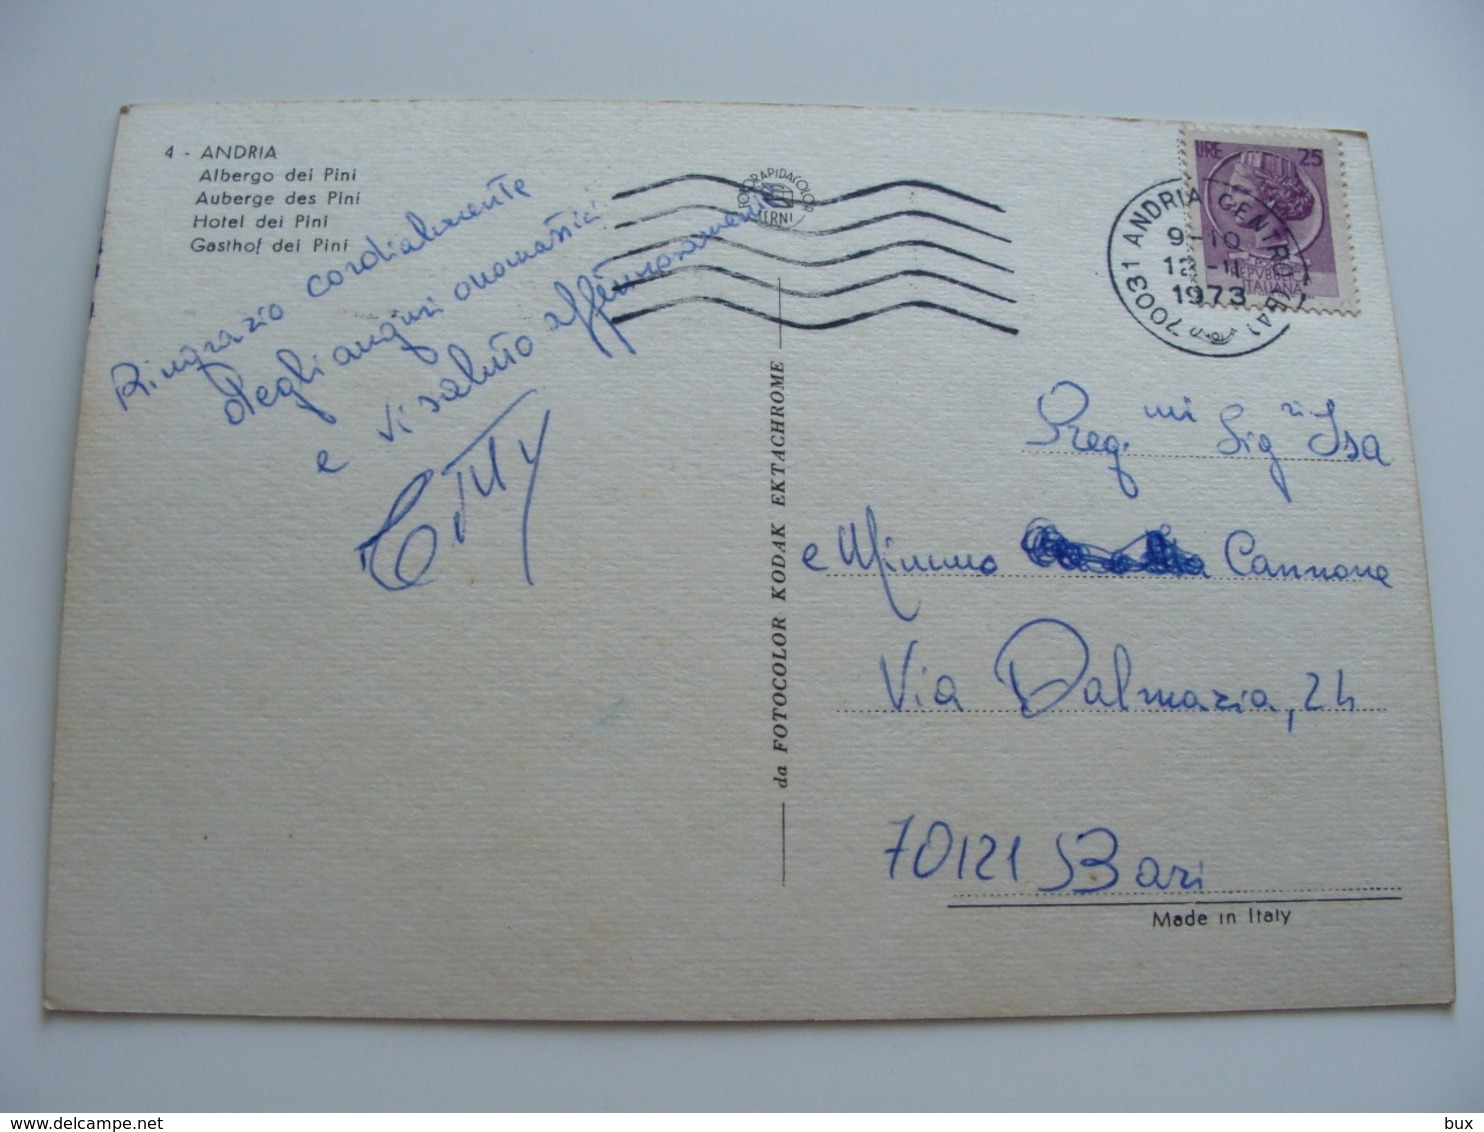 4 - ANDRIA
Albergo dei Pini
Auberge des Pini
Hotel dei Pini
Gasthof dei Pini
Ringrazio cordialmente
degli auguri onomastici
e vi saluto affettuosamente
FOTORAPIDACOLOR
TERNI
LIRE 25
REPVBBLICA
ITALIANA
70031 ANDRIA CENTRO (BA)
9-10
12-11
1973
da FOTOCOLOR KODAK EKTACHROME
Preg.mi Sig.ri Isa
e Mimmo Cannone
Via Dalmazia, 24
70121 Bari
Made in Italy
bux